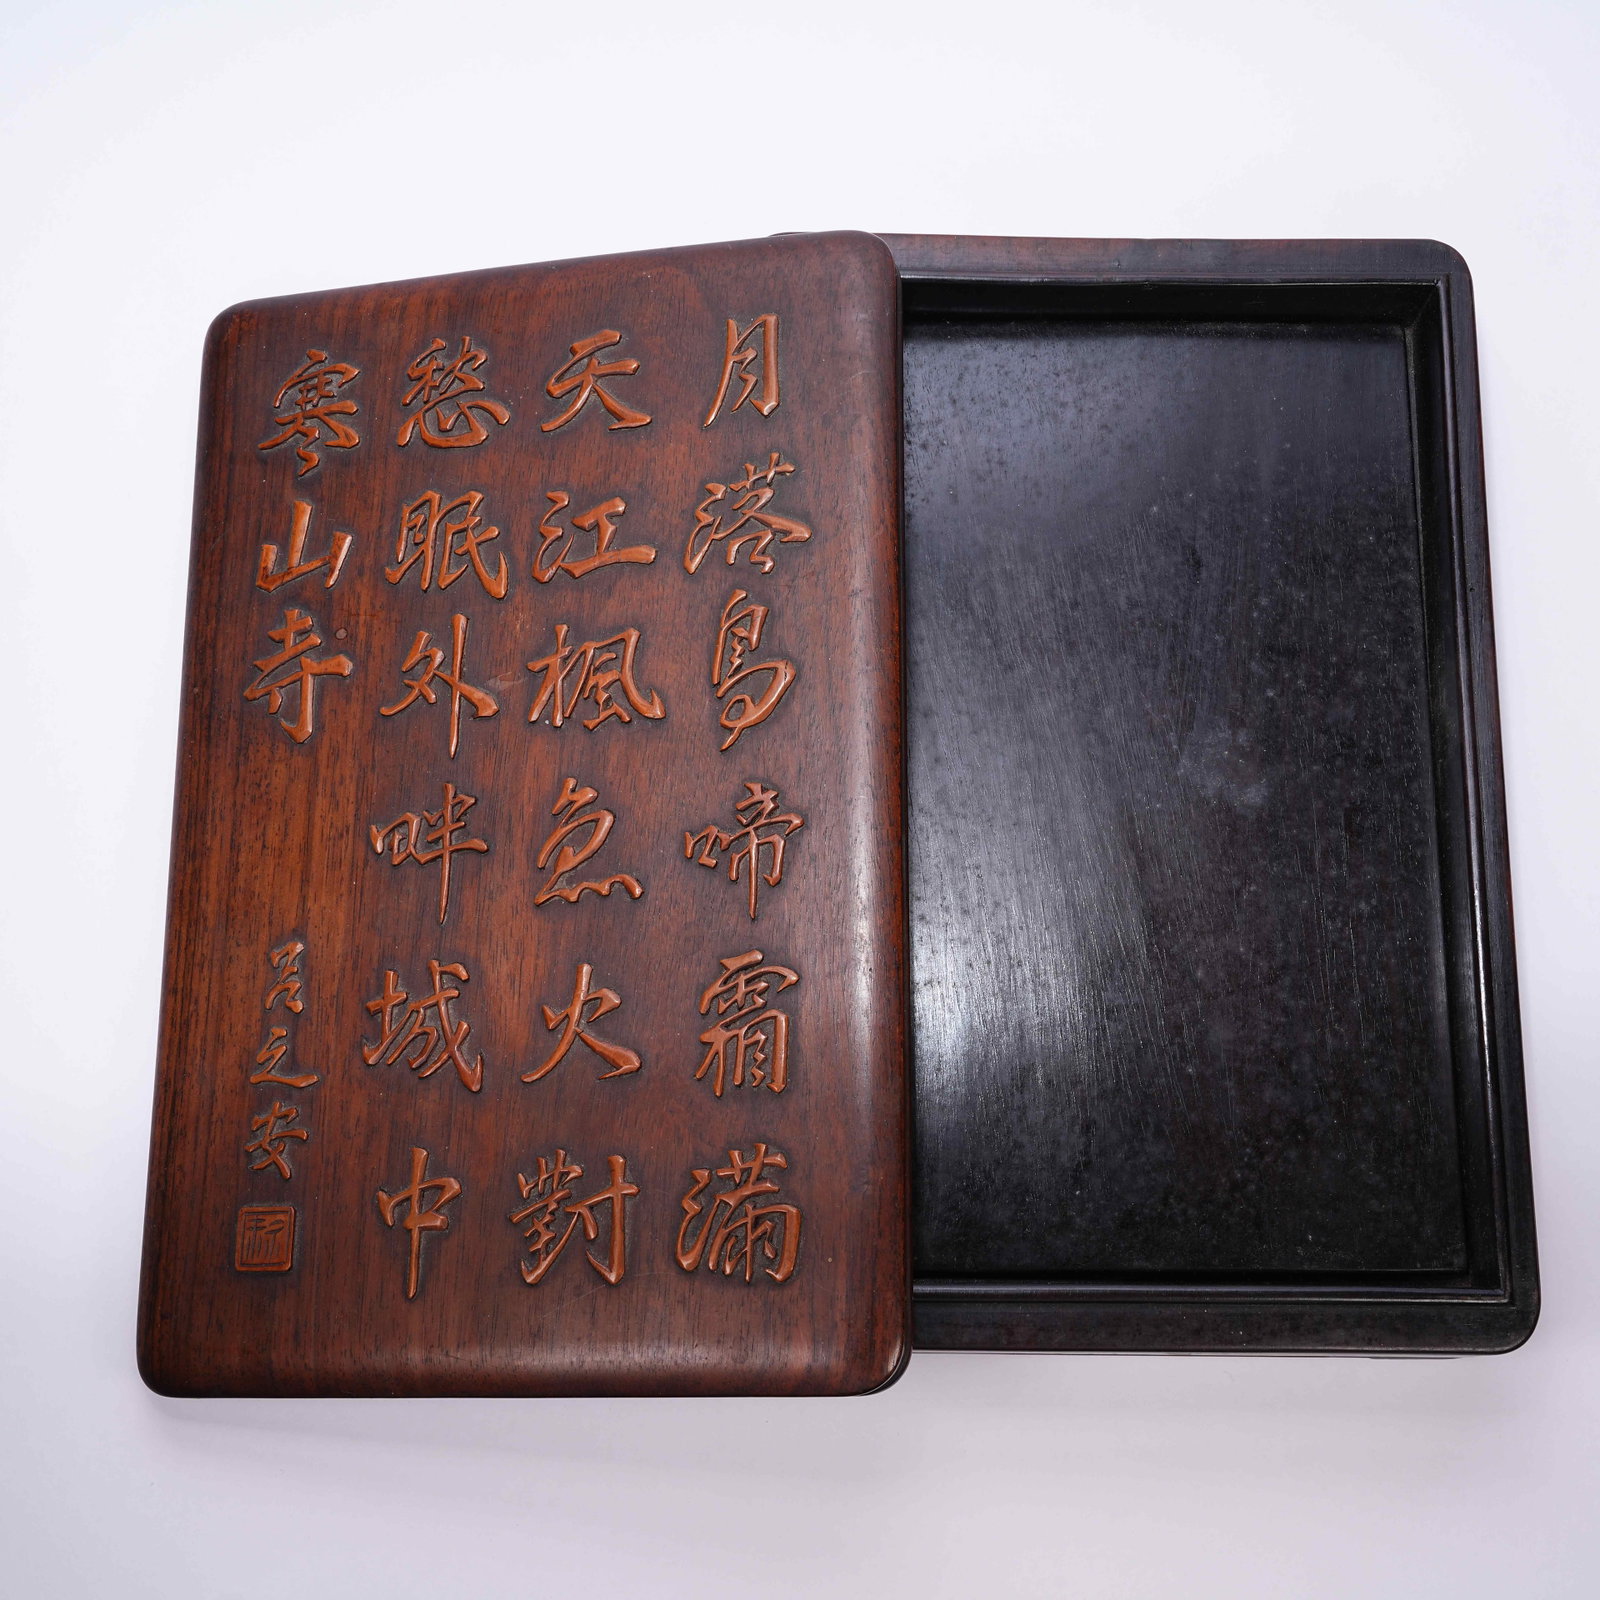 月落鳥啼霜滿
天江楓魚火對
愁眠外畔城中
寒山寺
呂之安